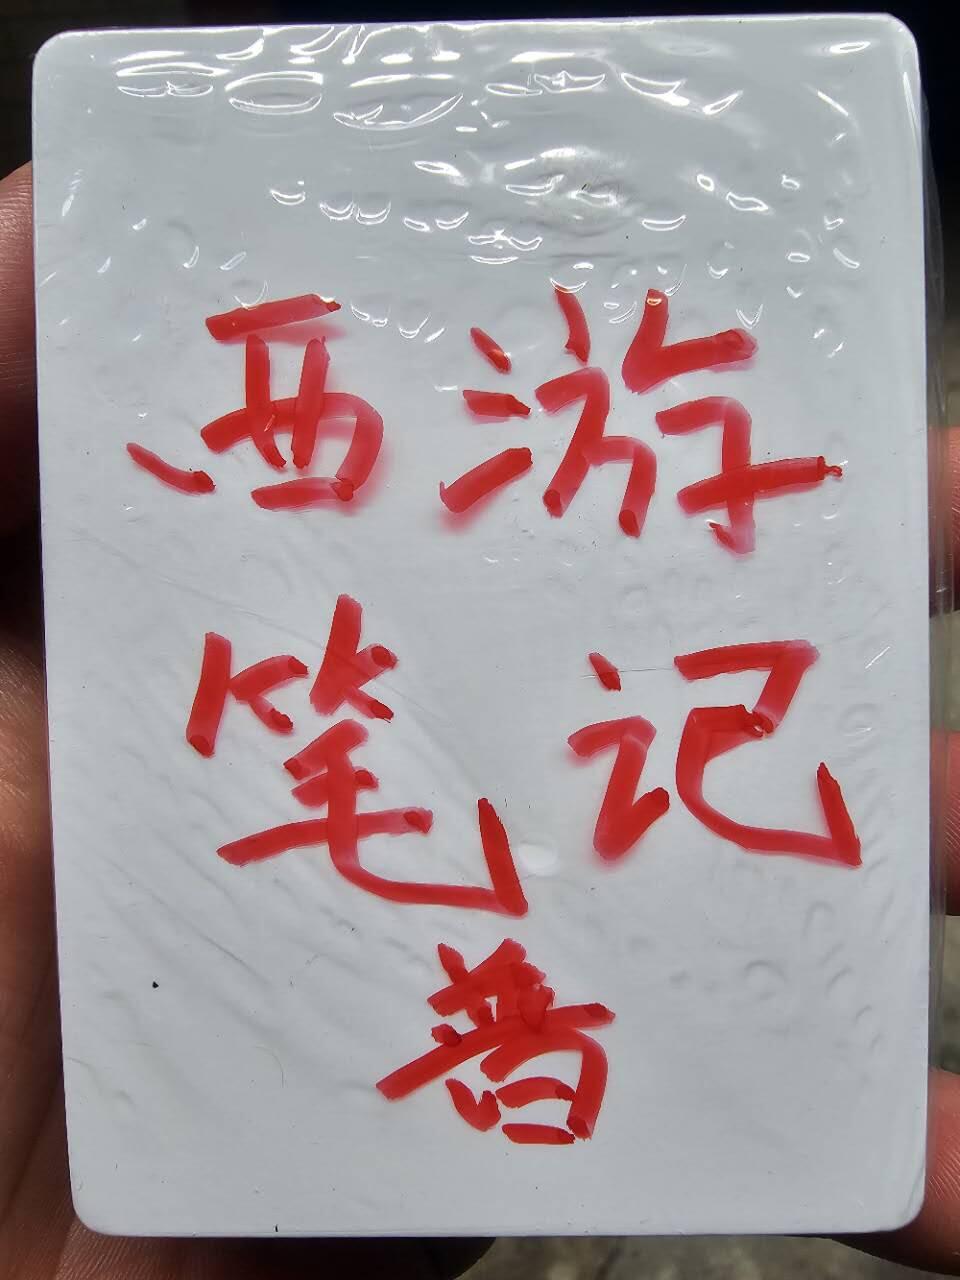 西游
笔记
普